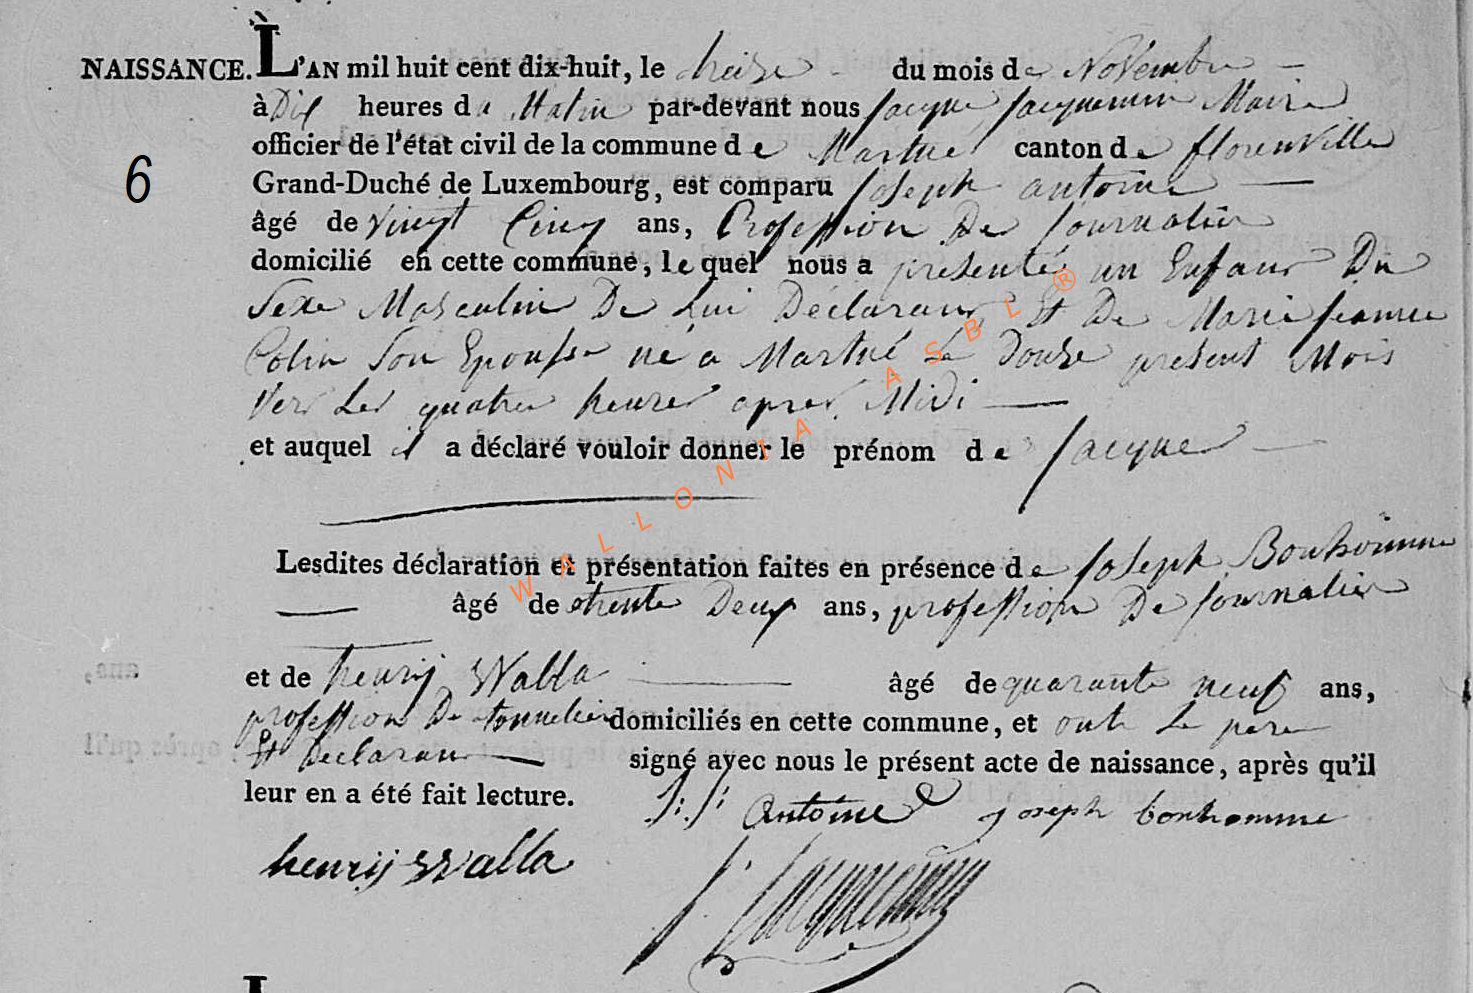 NAISSANCE. L'AN mil huit cent dix-huit, le treize du mois de Novembre
à Dix heures du Matin par-devant nous Jacque Jacquemin Maire
officier de l'état civil de la commune de Martué canton de florenville
6
Grand-Duché de Luxembourg, est comparu Joseph antoine
âgé de vingt Cinq ans, Profession De Journalier
domicilié en cette commune, lequel nous a presenté un Enfant Du
Sexe Masculin De Lui Déclarant Et De Marie jeanne
Colin Son Epouse né a Martué Le Douze present Mois
Vers Les quatres heures apres Midi
et auquel il a déclaré vouloir donner le prénom de Jacque
WALLONIA ASBL ®
Lesdites déclaration et présentation faites en présence de Joseph Bonhomme
âgé de trente Deux ans, profession De Journalier
et de henrij Walla âgé de quarante neuf ans,
profession De tonnelier domiciliés en cette commune, et ont Le pere
Et Declarant signé avec nous le présent acte de naissance, après qu'il
leur en a été fait lecture. J: J: Antoine joseph bonhomme
henrij Walla J. Jacquemin